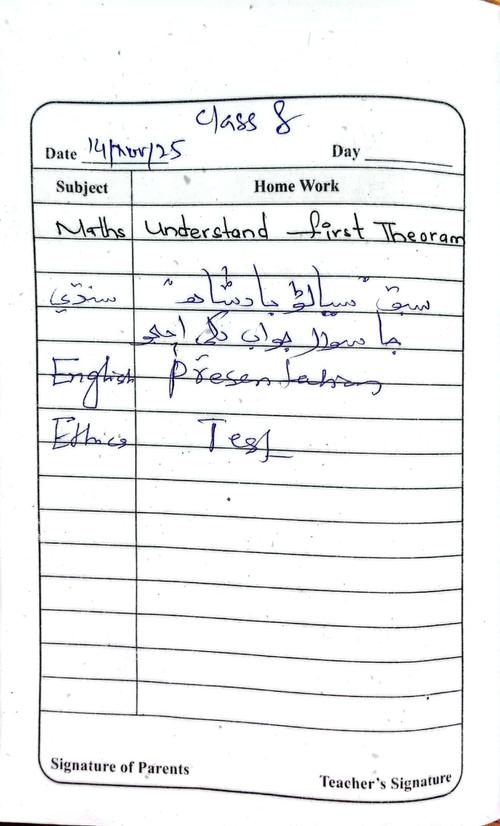 Class 8
Date 14/Nov/25 Day
Subject Home Work
Maths Understand first Theoram
سنڌي سبق "سياڻو بادشاهہ"
جا سوال جواب لکي اچو
English Presentation
Ethics Test
Signature of Parents Teacher's Signature